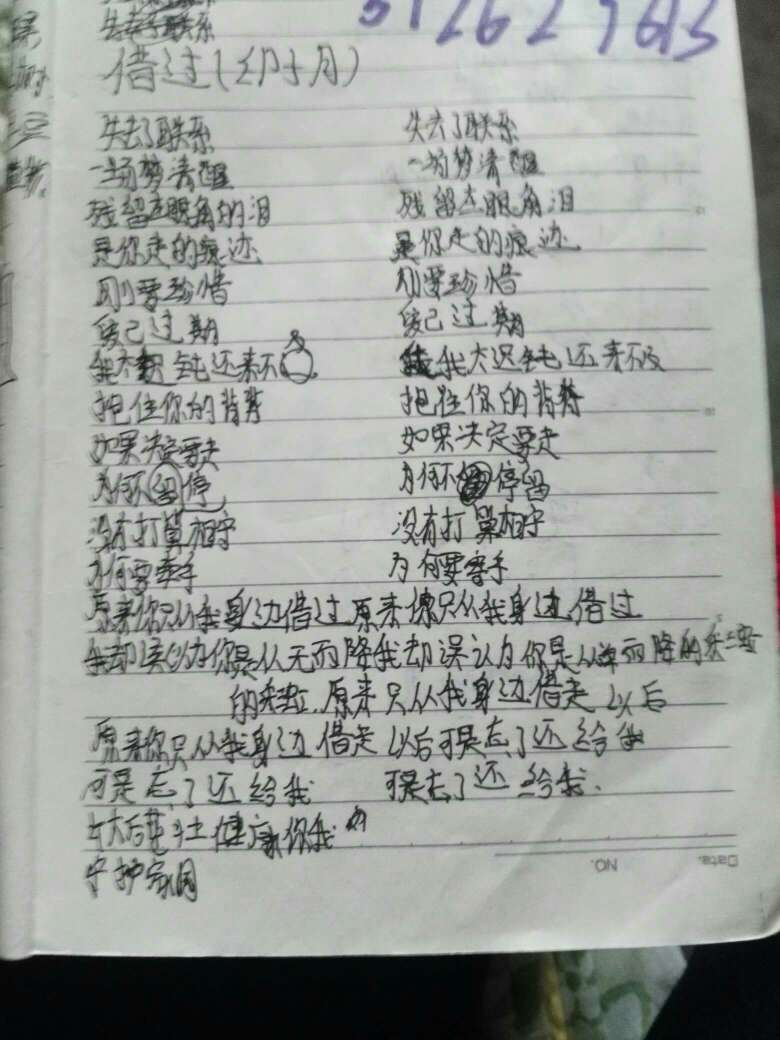 失去了联系
借过(印子月)
失去了联系 失去了联系
一场梦清醒 一场梦清醒
残留在眼角的泪 残留在眼角泪
是你走的痕迹 是你走的痕迹
刚要珍惜 刚要珍惜
缘已过期 缘已过期
我太迟钝还来不及 我太迟钝还来不及
抱住你的背脊 抱住你的背脊
如果决定要走 如果决定要走
为何不留停 为何不停留
没有打算相守 没有打算相守
为何要牵手 为何要牵手
原来你只从我身边借过原来 只从我身边借过
我却误以为你是从天而降我却误认为你是从 而降的
的 原来只从我身边借走 以后
原来你只从我身边借走以后可是忘了还给我
可是忘了还给我 可是忘了还给我.
健康 你我
守护家园
Date. NO.